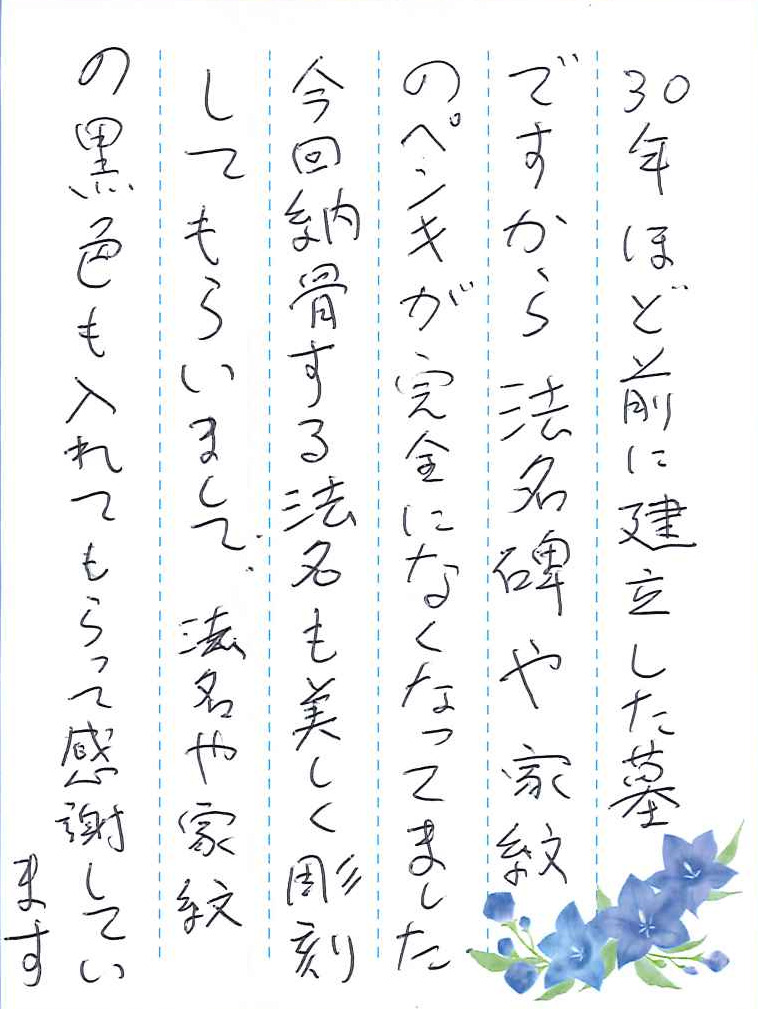 30年ほど前に建立した墓
ですから法名碑や家紋
のペンキが完全になくなってました
今回納骨する法名も美しく彫刻
してもらいまして、法名や家紋
の黒色も入れてもらって感謝してい
ます